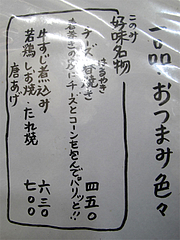 一品・おつまみ色々
このみ
好味名物
はるまき
チーズ春焼き
春巻きの皮にチーズとコーンを包んでパリッと!!
四五〇
牛すじ煮込み
六三〇
若鶏しお焼・たれ焼
唐あげ
七〇〇